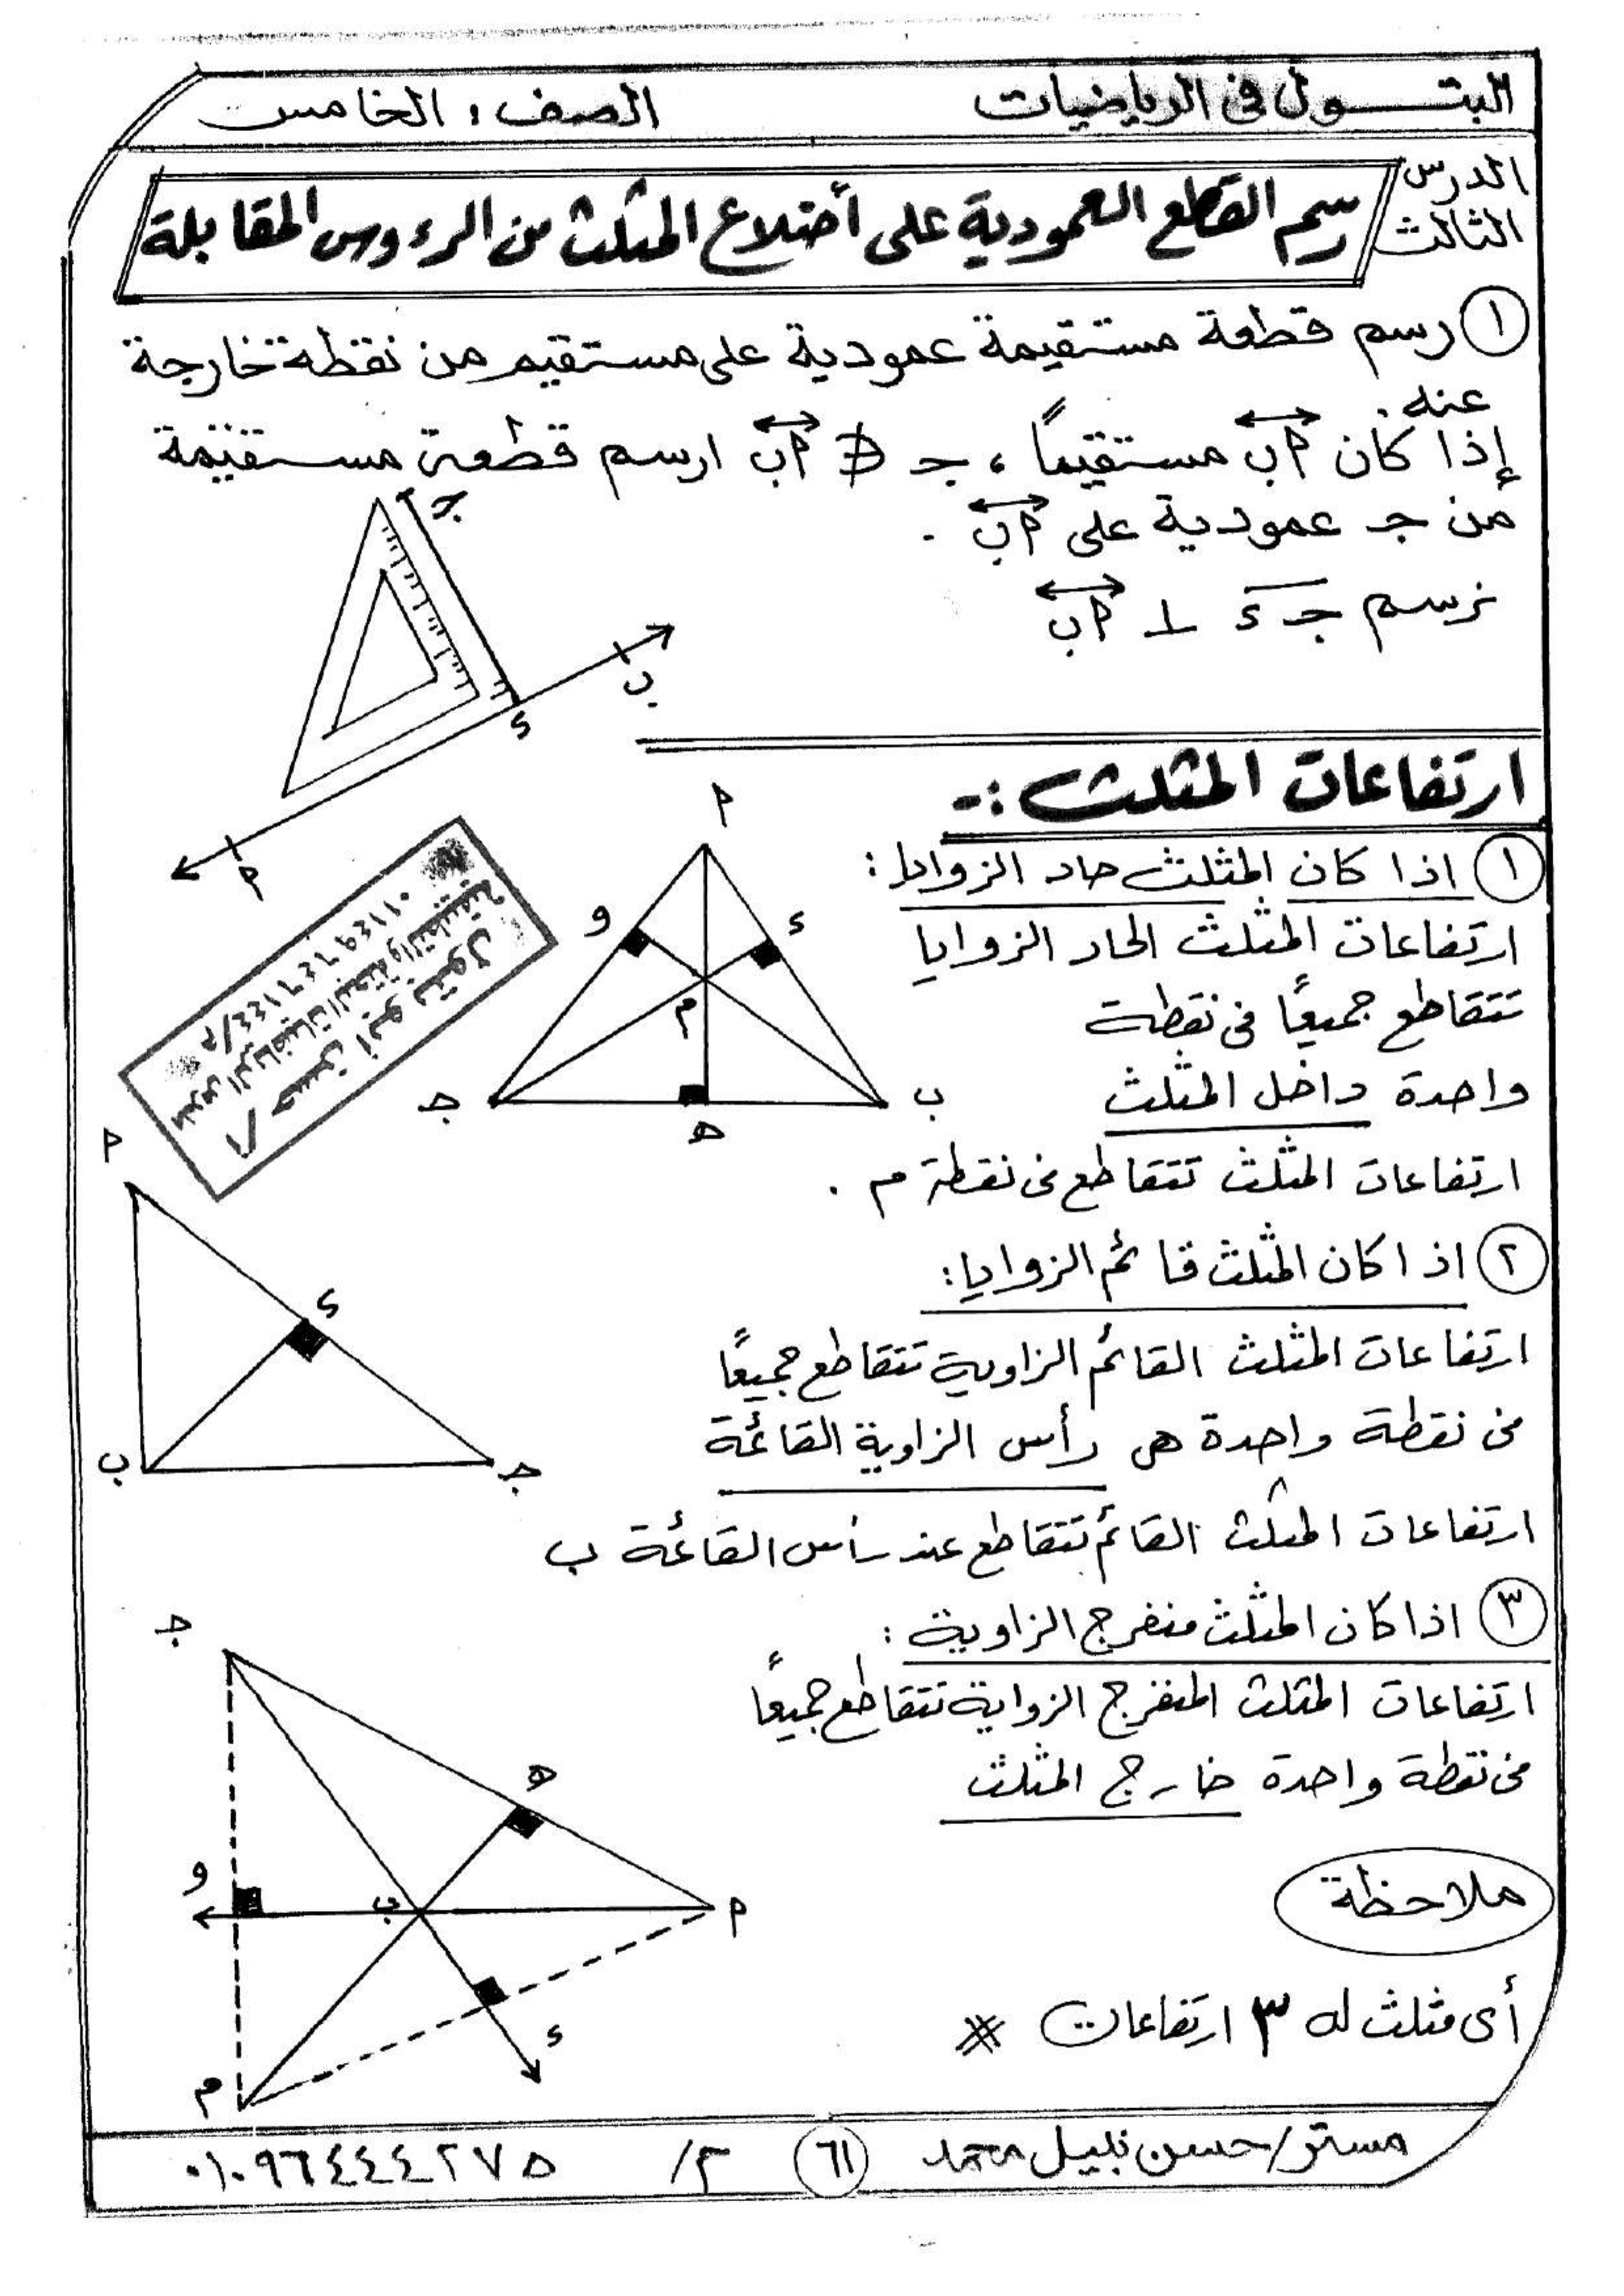 البتــــول فى الرياضيات
الصف : الخامس
الدرس الثالث
رسم القطع العمودية على أضلاع المثلث من الرءوس المقابلة
١ رسم قطعة مستقيمة عمودية على مستقيم من نقطة خارجة
عنه .
إذا كان أب مستقيماً ، جـ ∉ أب ارسم قطعة مستقيمة
من جـ عمودية على أب .
نرسم جـ ء ⊥ أب
جـ
ب
ء
أ
ارتفاعات المثلث :-
١ اذا كان المثلث حاد الزوايا :
ارتفاعات المثلث الحاد الزوايا
تتقاطع جميعًا فى نقطة
واحدة داخل المثلث
ارتفاعات المثلث تتقاطع فى نقطة م .
أ
و
ء
م
جـ
ب
هـ
أ / حسن أبو بتول
مدرس الرياضيات البحتة والتطبيقية
م / ٠١١٤٩٦٤٦١٤٤
٢ اذا كان المثلث قائم الزوايا :
ارتفاعات المثلث القائم الزاوية تتقاطع جميعًا
فى نقطة واحدة هى رأس الزاوية القائمة
ارتفاعات المثلث القائم تتقاطع عند رأس القائمة ب
أ
ء
ب
جـ
٣ اذا كان المثلث منفرج الزاوية :
ارتفاعات المثلث المنفرج الزواية تتقاطع جميعًا
فى نقطة واحدة خارج المثلث
جـ
هـ
و
ب
أ
ء
م
ملاحظة
أى مثلث له ٣ ارتفاعات
مستر / حسن نبيل محمد
٦١
م / ٠١٠٩٦٤٤٤٢٧٥